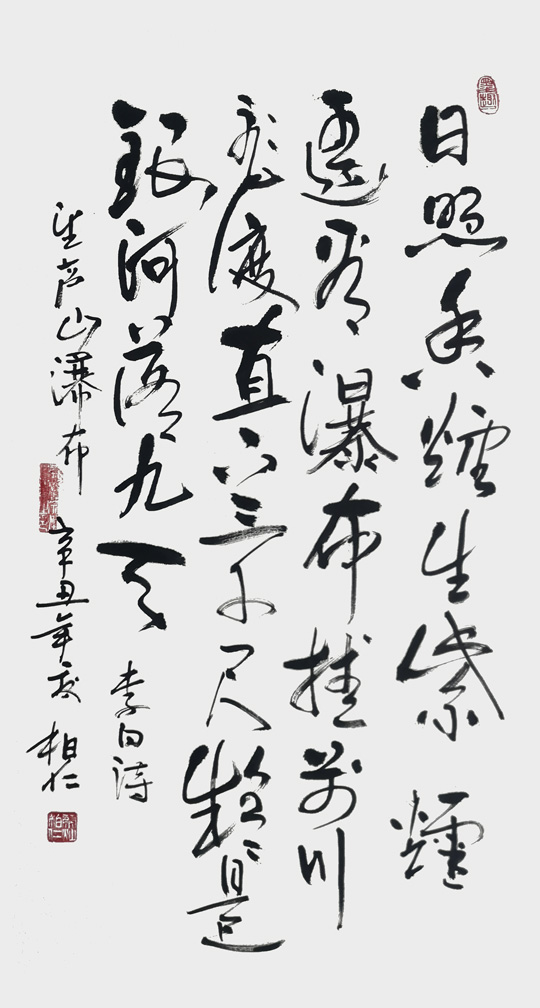 日照香爐生紫煙
遥看瀑布挂前川
飛流直下三千尺疑是
銀河落九天 李白詩
望庐山瀑布 辛丑年秋 柏仁